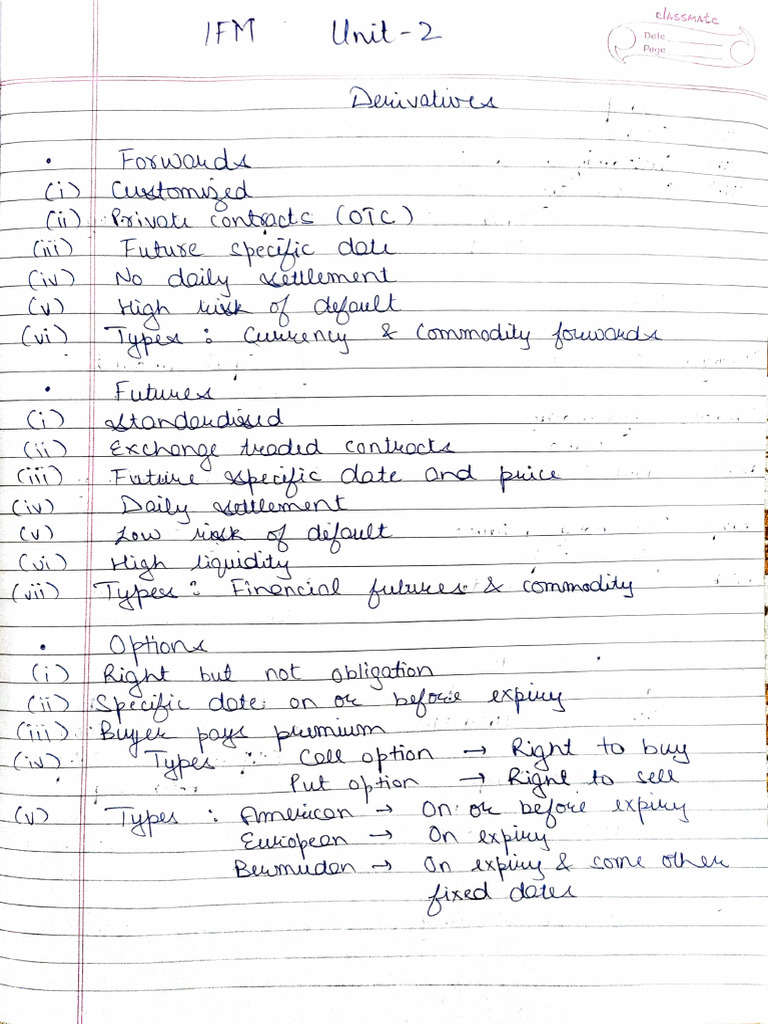 IFM Unit-2
classmate
Date
Page
Derivatives
• Forwards
(i) Customized
(ii) Private contracts (OTC)
(iii) Future specific date
(iv) No daily settlement
(v) High risk of default
(vi) Types : Currency & Commodity forwards
• Futures
(i) Standardised
(ii) Exchange traded contracts
(iii) Future specific date and price
(iv) Daily settlement
(v) Low risk of default
(vi) High liquidity
(vii) Types : Financial futures & commodity
• Options
(i) Right but not obligation
(ii) Specific date on or before expiry
(iii) Buyer pays premium
(iv) Types : Call option → Right to buy
Put option → Right to sell
(v) Types : American → On or before expiry
European → On expiry
Bermudan → On expiry & some other
fixed dates